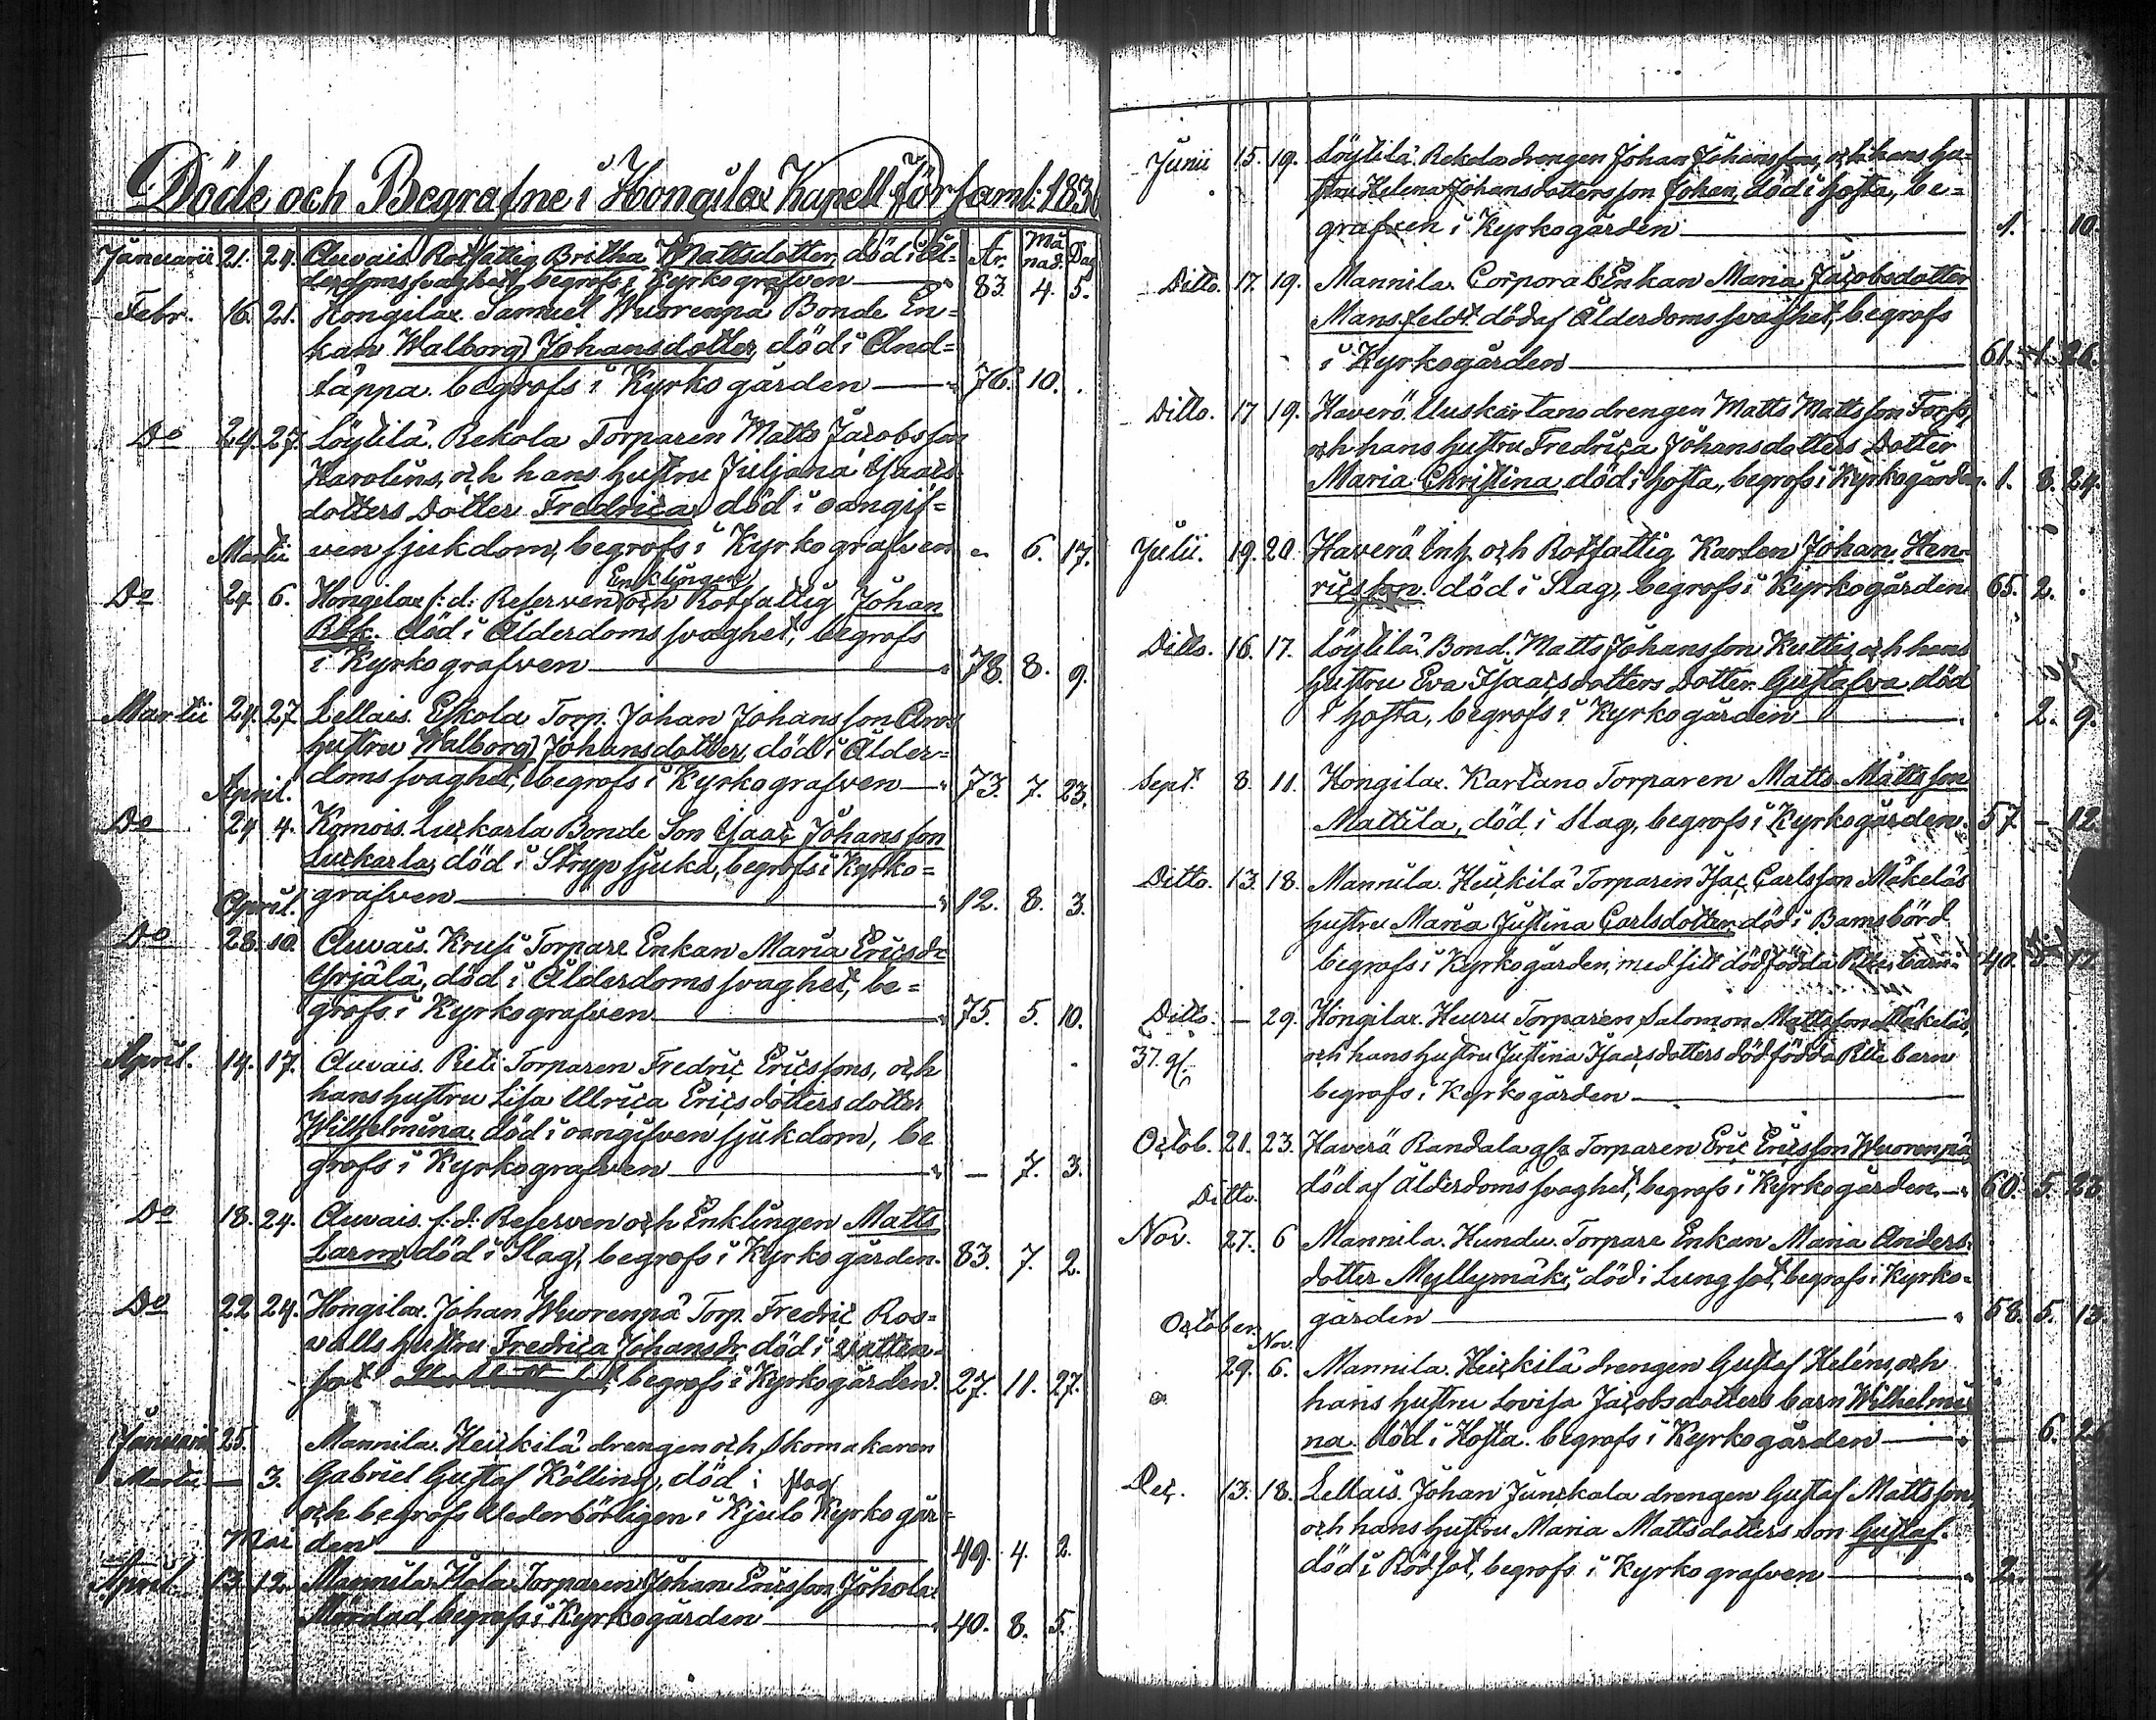 Döde och Begrafne i Hongilax Kapell församl: 183
År. Månad. Dag
Januarii 21. 24. Auvais. Rotfattig Britha Mattsdotter, död i Ål-
derdomssvaghet, begrofs i Kyrkografven 83. 4. 5.
Febr. 16. 21. Hongilax. Samuel Wuorenpä Bonde En-
kan Walborg Johansdotter, död i And-
täppa. begrofs i Kyrkogården 76. 10. .
Do 24. 27. Löytilä. Rekola Torparen Matts Jacobsson
Karolins, och hans hustru Juljana Isaacs
dotters Dotter Fredrica, död i oangif-
Martii ven sjukdom, begrofs i Kyrkografven 6. 17.
Enklingen
Do 24. 6. Hongilax f:d: Reserven och Rotfattig Johan
Rek. död i Ålderdomssvaghet, begrofs
i Kyrkografven 78. 8. 9.
Martii 24. 27 Lellais. Eskola Torp. Johan Johansson Aros
hustru Walborg Johansdotter, död i Ålder-
domssvaghet, begrofs i Kyrkografven 73. 7. 23.
April.
Do 24 4. Komois. Luckarla Bonde Son Isaac Johansson
Luckarla, död i Strypsjuka, begrofs i Kyrko-
grafven 12. 8. 3.
April.
Do 28. 10. Auvais. Krusi Torpare Enkan Maria Ericsdr
Yrjälä, död i Ålderdomssvaghet, be-
grofs i Kyrkografven 75. 5. 10.
April. 14. 17. Auvais. Piti Torparen Fredric Ericssons, och
hans hustru Lisa Ulrica Ericsdotters dotter
Wilhelmina. död i oangifven sjukdom, be
grofs i Kyrkografven — 7. 3.
Do 18. 24. Auvais. f:d: Reserven och Enklingen Matts
Larm, död i Slag, begrofs i Kyrkogården. 83. 7. 2.
Do 22 24. Hongilax. Johan Wuorenpä Torp. Fredric Ros-
walls hustru Fredrica Johansdr, död i vatten-
sot begrofs i Kyrkogården. 27. 11. 27.
Januarii 25. Mannila. Heickilä drengen och skomakaren
Martii — 3. Gabriel Gustaf Kölling, död i slag
och begrofs vederbörligen i Kjulo Kyrkogår-
Maii den 49. 4. 2.
April 13. 12. Mannila. Torparen Johan Ericsson Johola.
Mördad, begrofs i Kyrkogården 40. 8. 5.
Junii 15. 19. Löytilä. Rekola drengen Johan Johanssons, och hans hu-
stru Helena Johansdotters son Johan, död i hosta, be-
grafven i Kyrkogården 1. . 10.
Ditto. 17. 19. Mannila. Corporals Enkan Maria Jacobsdotter
Mansfeldt. död af Ålderdomssvaghet, begrofs
i Kyrkogården 61. 1. 26.
Ditto. 17 19. Haverö. Uuskartano drengen Matts Mattsson Forss,
och hans hustru Fredrica Johansdotters Dotter
Maria Christina, död i hosta, begrofs i Kyrkogården. 1. 8. 24.
Julii. 19. 20. Haverä Inh. och Rotfattig Karlen Johan Hen-
ricsson. död i Slag, begrofs i Kyrkogården 65. 2. .
Ditto. 16. 17. Löytilä. Bond. Matts Johansson Kuttis, och hans
hustru Eva Isaacsdotters dotter. Gustafva död
i hosta, begrofs i Kyrkogården . 2. 9.
Sept. 8. 11. Hongilax. Kartano Torparen Matts Mattsson
Mattila, död i Slag, begrofs i Kyrkogården. 57 — 12.
Ditto. 13. 18. Mannila. Heickilä Torparen Isac Carlsson Mäkeläs
hustru Maria Justina Carlsdotter. död i Barnsbörd
begrofs i Kyrkogården, med sitt dödfödda barn 40.
Ditto. — 29. Hongilax. Huru Torparen Salomon Mattsson Mäkeläs,
37. och hans hustru Justina Isaacsdotters dödfödda barn
begrofs i Kyrkogården
Octob. 21. 23. Haverä Randala Torparen Eric Ericsson Wuorenpä
Ditto. död af Ålderdomssvaghet, begrofs i Kyrkogården. 60. 5. 23.
Nov. 27. 6 Mannila. Hundu. Torpare Enkan Maria Anders-
dotter Myllymäki, död i Lungsot, begrofs i Kyrko-
gården 58. 5. 13.
October. Nov.
29. 6. Mannila. Heickilä drengen Gustaf Heléns, och
hans hustru Lovisa Jacobsdotters barn Wilhelmi-
na. död i Hosta. begrofs i Kyrkogården — 6.
Dec. 13. 18. Lellais. Johan Junckala drengen Gustaf Mattsson
och hans hustru Maria Mattsdotters son Gustaf.
död i Rödsot, begrofs i Kyrkografven 2. —